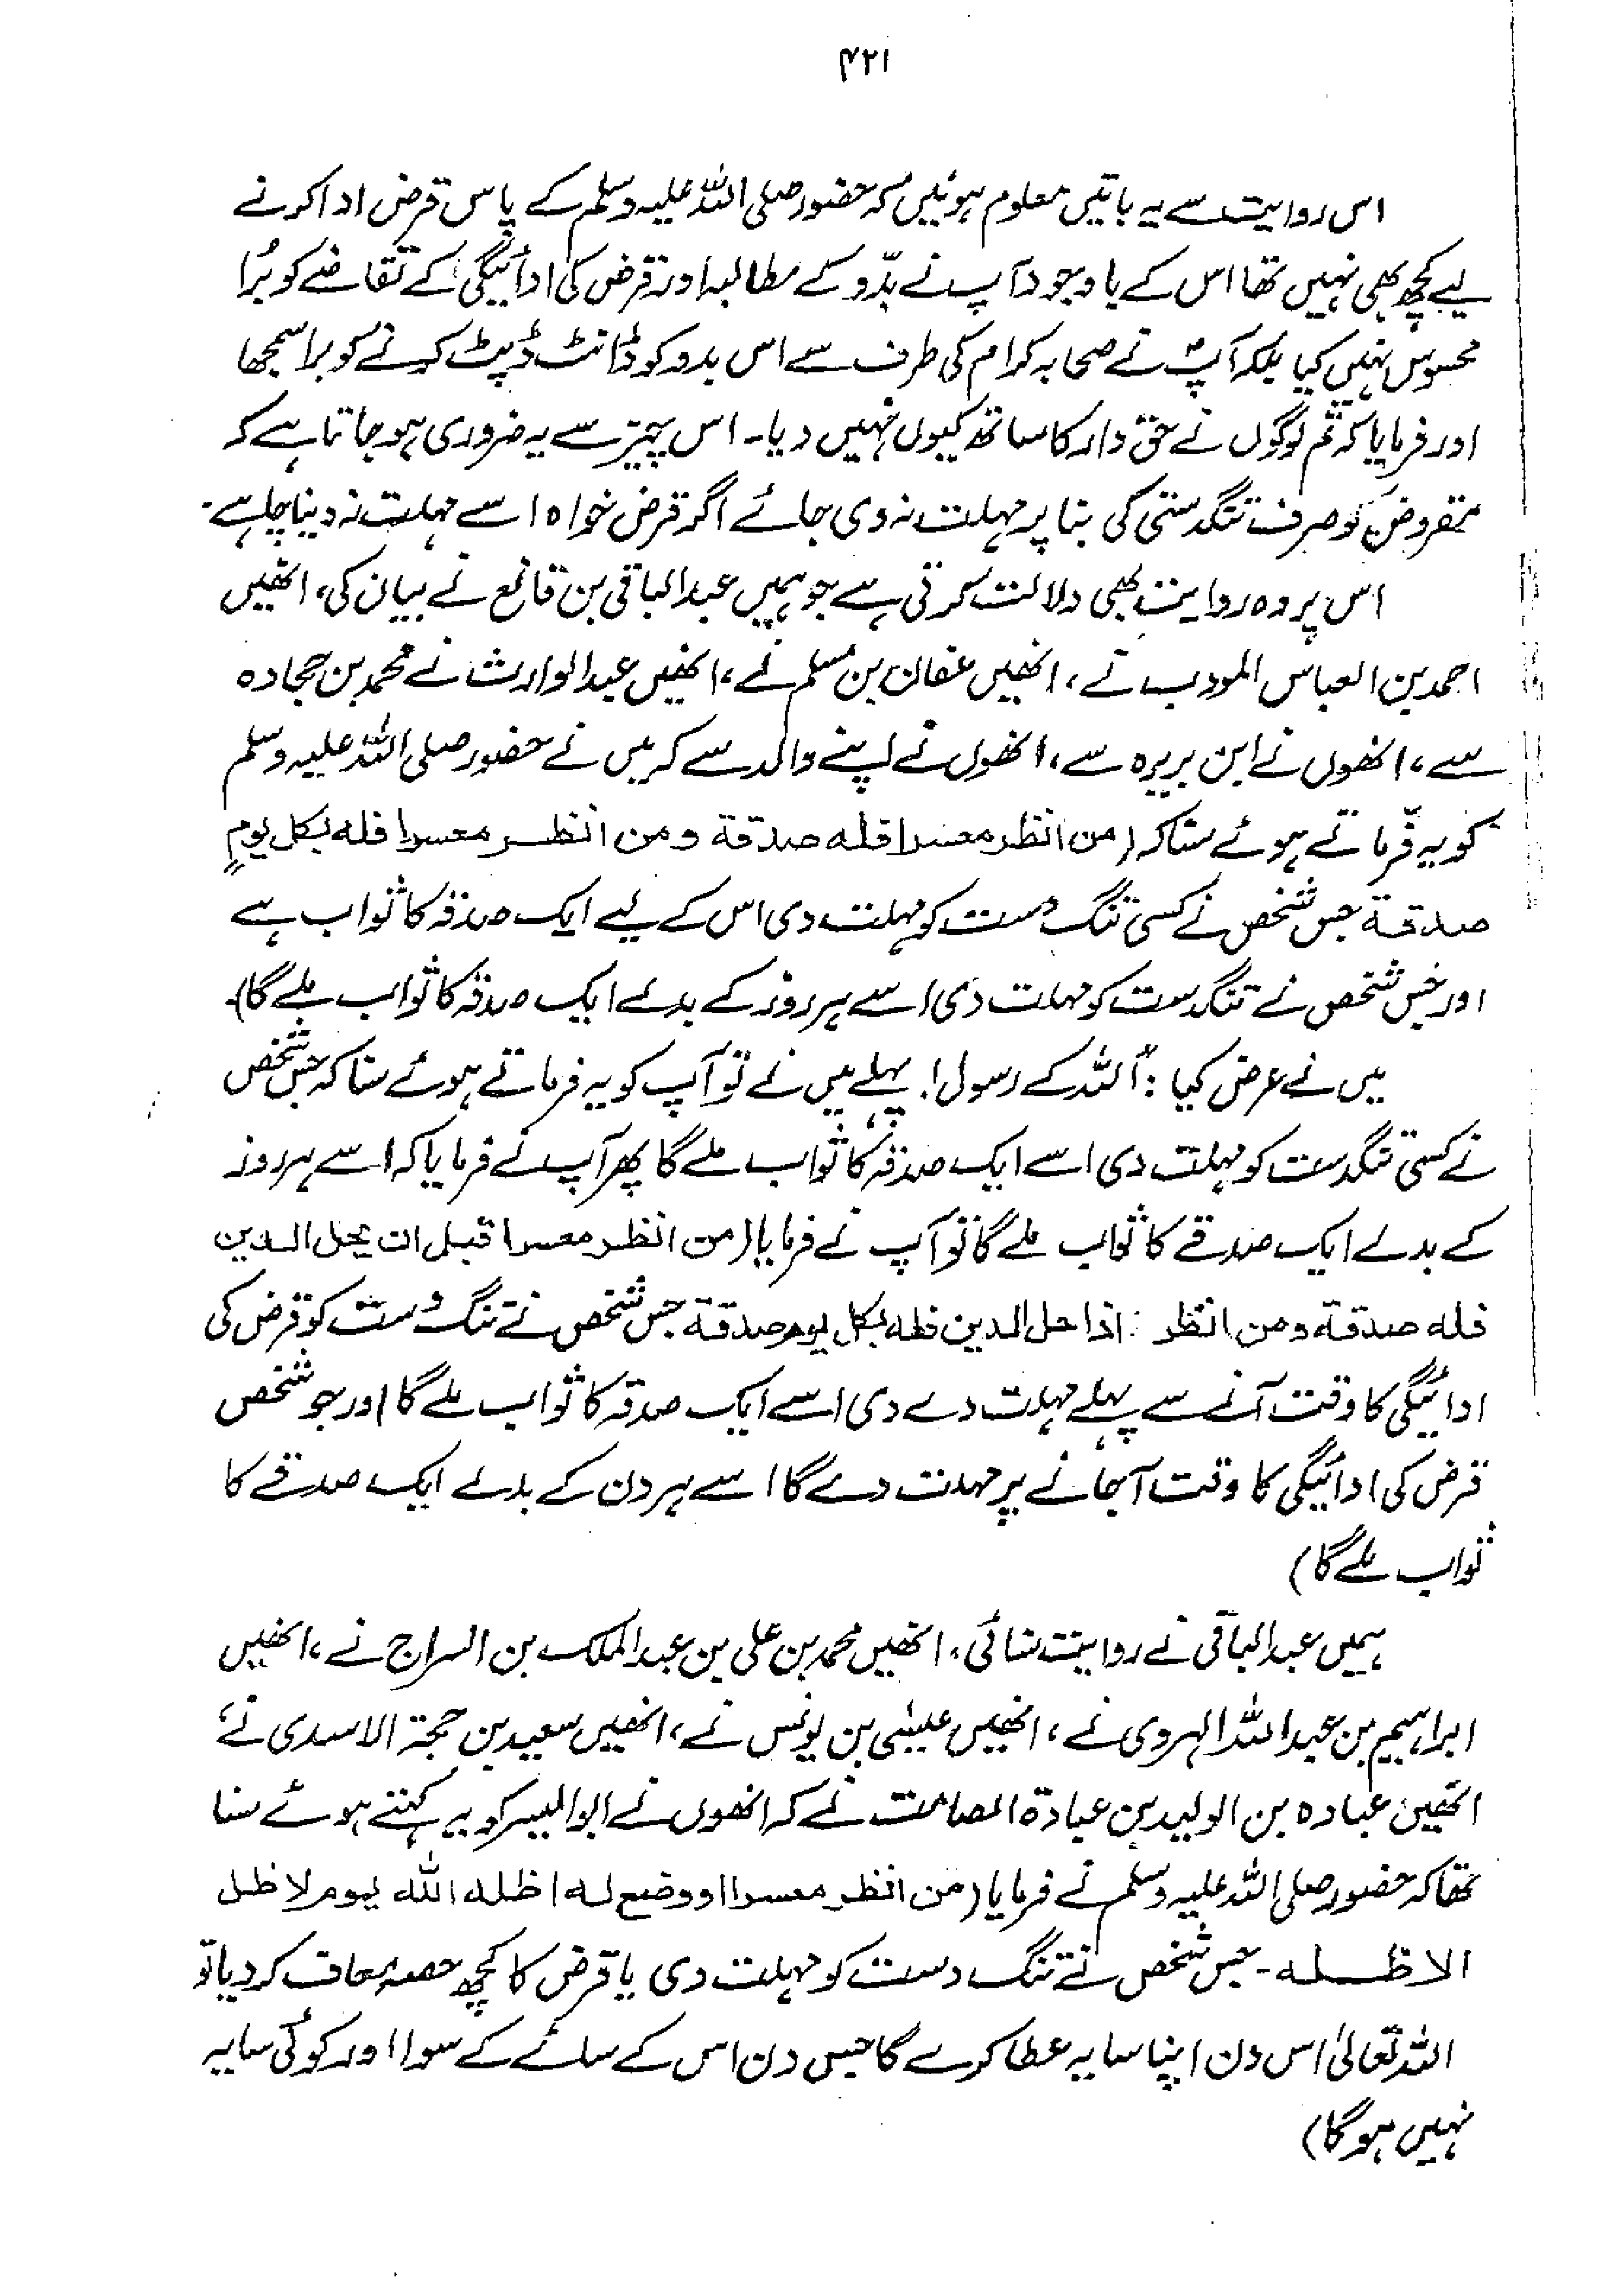 ۴۲۱
اس روایت سے یہ باتیں معلوم ہوئیں کہ حضور صلی اللہ علیہ وسلم کے پاس قرض ادا کرنے
لیے کچھ بھی نہیں تھا اس کے باوجود آپ نے بدّو کے مطالبہ اور قرض کی ادائیگی کے تقاضے کو بُرا
محسوس نہیں کیا بلکہ آپؐ نے صحابہ کرام کی طرف سے اس بدو کو ڈانٹ ڈپٹ کرنے کو برا سمجھا
اور فرمایا کہ تم لوگوں نے حق دار کا ساتھ کیوں نہیں دیا۔ اس چیز سے یہ ضروری ہو جاتا ہے کہ
مقروض کو صرف تنگدستی کی بنا پر مہلت نہ دی جائے اگر قرض خواہ اسے مہلت نہ دینا چاہے۔
اس پر وہ روایت بھی دلالت کرتی ہے جو ہمیں عبدالباقی بن قانع نے بیان کی، انھیں
احمد بن العباس المودب نے، انھیں عفان بن مسلم نے، انھیں عبدالوارث نے محمد بن حجادہ
سے، انھوں نے ابن بریرہ سے، انھوں نے اپنے والد سے کہ میں نے حضور صلی اللہ علیہ وسلم
کو یہ فرماتے ہوئے سنا کہ (من انظر معسرا فله صدقة ومن انظر معسرا فله بكل يومٍ
صدقة جس شخص نے کسی تنگ دست کو مہلت دی اس کے لیے ایک صدقہ کا ثواب ہے
اور جس شخص نے تنگدست کو مہلت دی اسے ہر روز کے بدلے ایک صدقہ کا ثواب ملے گا)۔
میں نے عرض کیا : "اللہ کے رسول! پہلے میں نے تو آپ کو یہ فرماتے ہوئے سنا کہ جس شخص
نے کسی تنگدست کو مہلت دی اسے ایک صدقہ کا ثواب ملے گا پھر آپ نے فرمایا کہ اسے ہر روز
کے بدلے ایک صدقے کا ثواب ملے گا تو آپ نے فرمایا (من انظر معسرا قبل ان يحل الدين
فله صدقة ومن انظر : اذا حل الدين فله بكل يوم صدقة جس شخص نے تنگ دست کو قرض کی
ادائیگی کا وقت آنے سے پہلے مہلت دے دی اسے ایک صدقہ کا ثواب ملے گا اور جو شخص
قرض کی ادائیگی کا وقت آجانے پر مہلت دے گا اسے ہر دن کے بدلے ایک صدقے کا
ثواب ملے گا)
ہمیں عبدالباقی نے روایت سنائی، انھیں محمد بن علی بن عبدالملک بن السراج نے، انھیں
ابراہیم بن عبداللہ الہروی نے، انھیں عیسٰی بن یونس نے، انھیں سعید بن حجۃ الاسدی نے،
انھیں عبادہ بن الولید بن عبادۃ الصامت نے کہ انھوں نے ابوالیسر کو یہ کہتے ہوئے سنا
تھا کہ حضور صلی اللہ علیہ وسلم نے فرمایا (من انظر معسرا او وضع له اظله الله يوم لا ظل
الا ظله۔ جس شخص نے تنگ دست کو مہلت دی یا قرض کا کچھ حصہ معاف کر دیا تو
اللہ تعالیٰ اس دن اپنا سایہ عطا کرے گا جس دن اس کے سائے کے سوا اور کوئی سایہ
نہیں ہو گا)